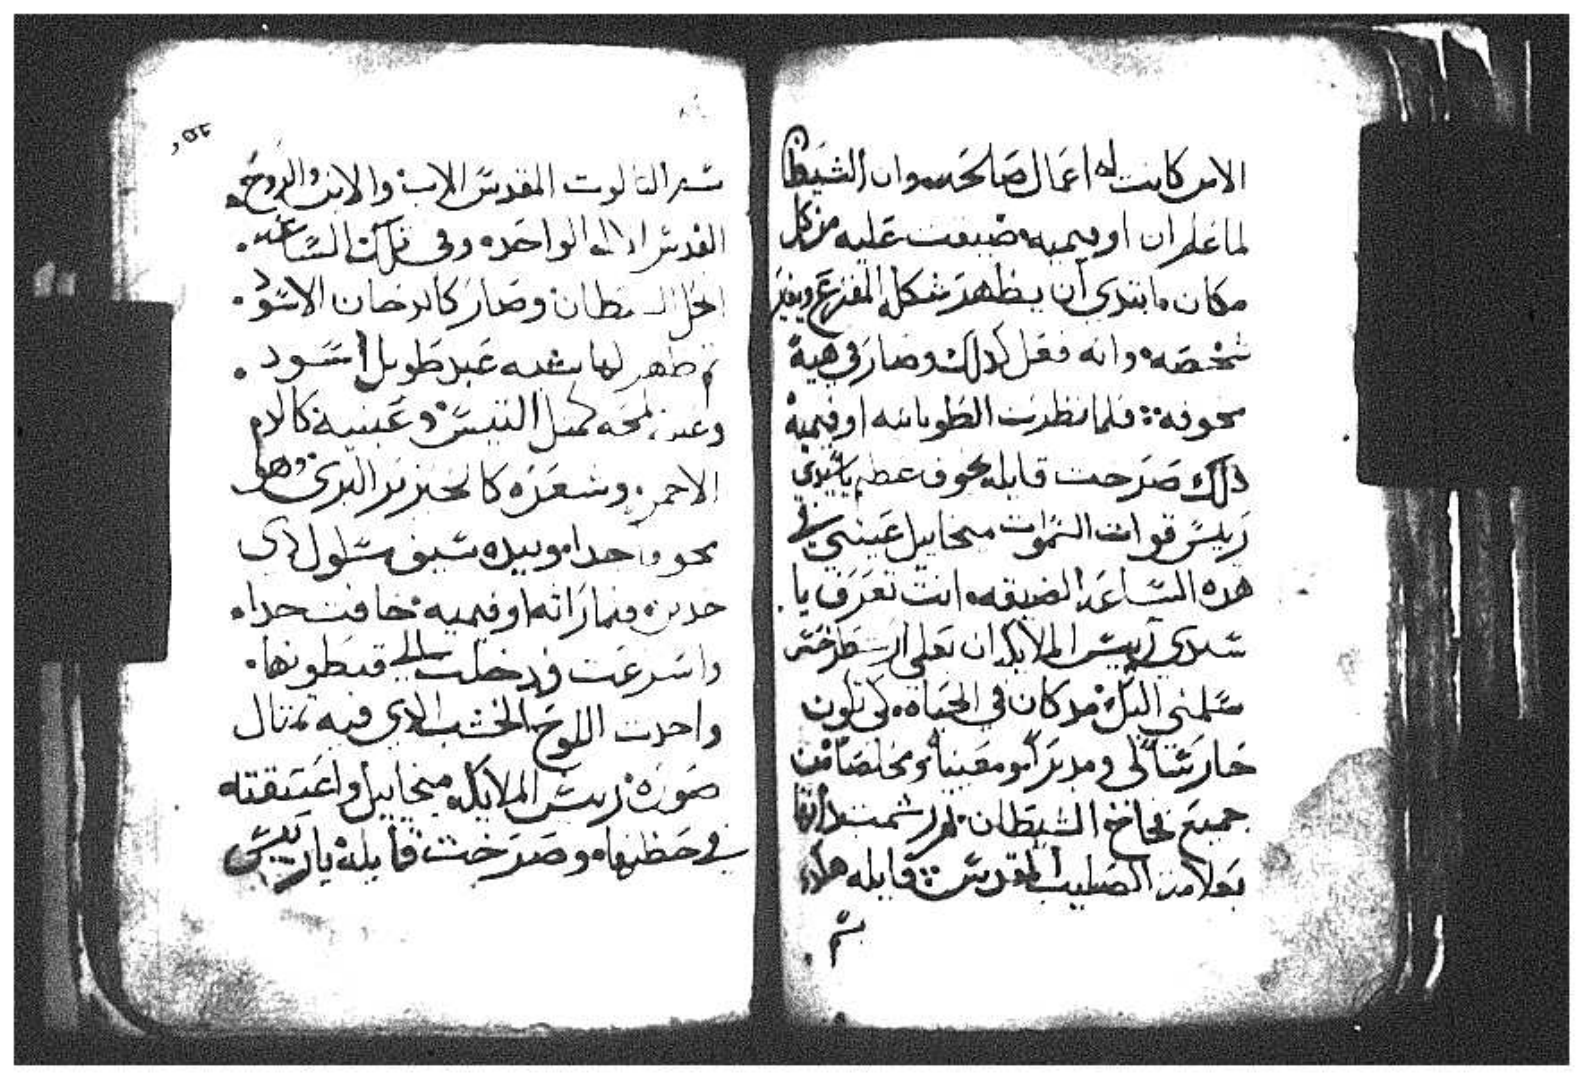 الامر كانت له اعمال صالحه وان الشيطا
لما علم ان اوفيميه ضيقت عليه من كل
مكان ابتدى ان يظهر شكله المفزع ويغير
شخصه وانه فعل كدلك وصار في هية
مخوفه فلما نظرت الطوبانيه اوفيمية
دلك صرخت قايله بخوف عظيم يا سيدي
رييس قوات السموات ميخاييل عينني في
هده الساعه الضيقه انت تعرف يا
سيدي رييس الملايكه ان بعلي ارسطرخس
سلمني اليك مد كان في الحياه لكي تكون
حارسًا لي ومدبرًا ومعينا ومخلصًا من
جميع فخاخ الشيطان رشمت داتها
بعلامة الصليب المقدس قايله هكدا
بسم
بسم التالوت المقدس الاب والابن والروح
القدس الاله الواحد وفي تلك الساعه
انحل الشيطان وصار كالدخان الاسود
تم ظهر لها شبه عبد طويل اسود
وعنده لحيه كمتل التيس وعينيه كالدم
الاحمر وشعره كالخنزير البري وهو
مخوف جدا وبيده سيف مسلول دي
حدين فلما راته اوفيميه خافت جدا
واسرعت ودخلت الى قيطونها
واخدت اللوح الخشب الدي فيه تمتال
صورة رييس الملايكه ميخاييل واعتنقته
في حظنها وصرخت قايلة يا رييس